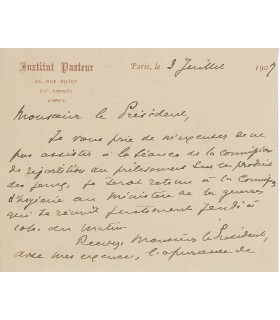 Institut Pasteur
Paris, le 3 Juillet 1907
25, RUE DUTOT
Monsieur le Président,
Je vous prie de m'excuser de ne
pas assister à la séance de la Commission
de répartition du prélèvement sur le produit
des jeux, je serai retenu à la Commission
d'hygiène au Ministère de la guerre
qui se réunit justement Jeudi à
10h. du matin.
Recevez Monsieur le Président,
avec mes excuses, l'assurance de